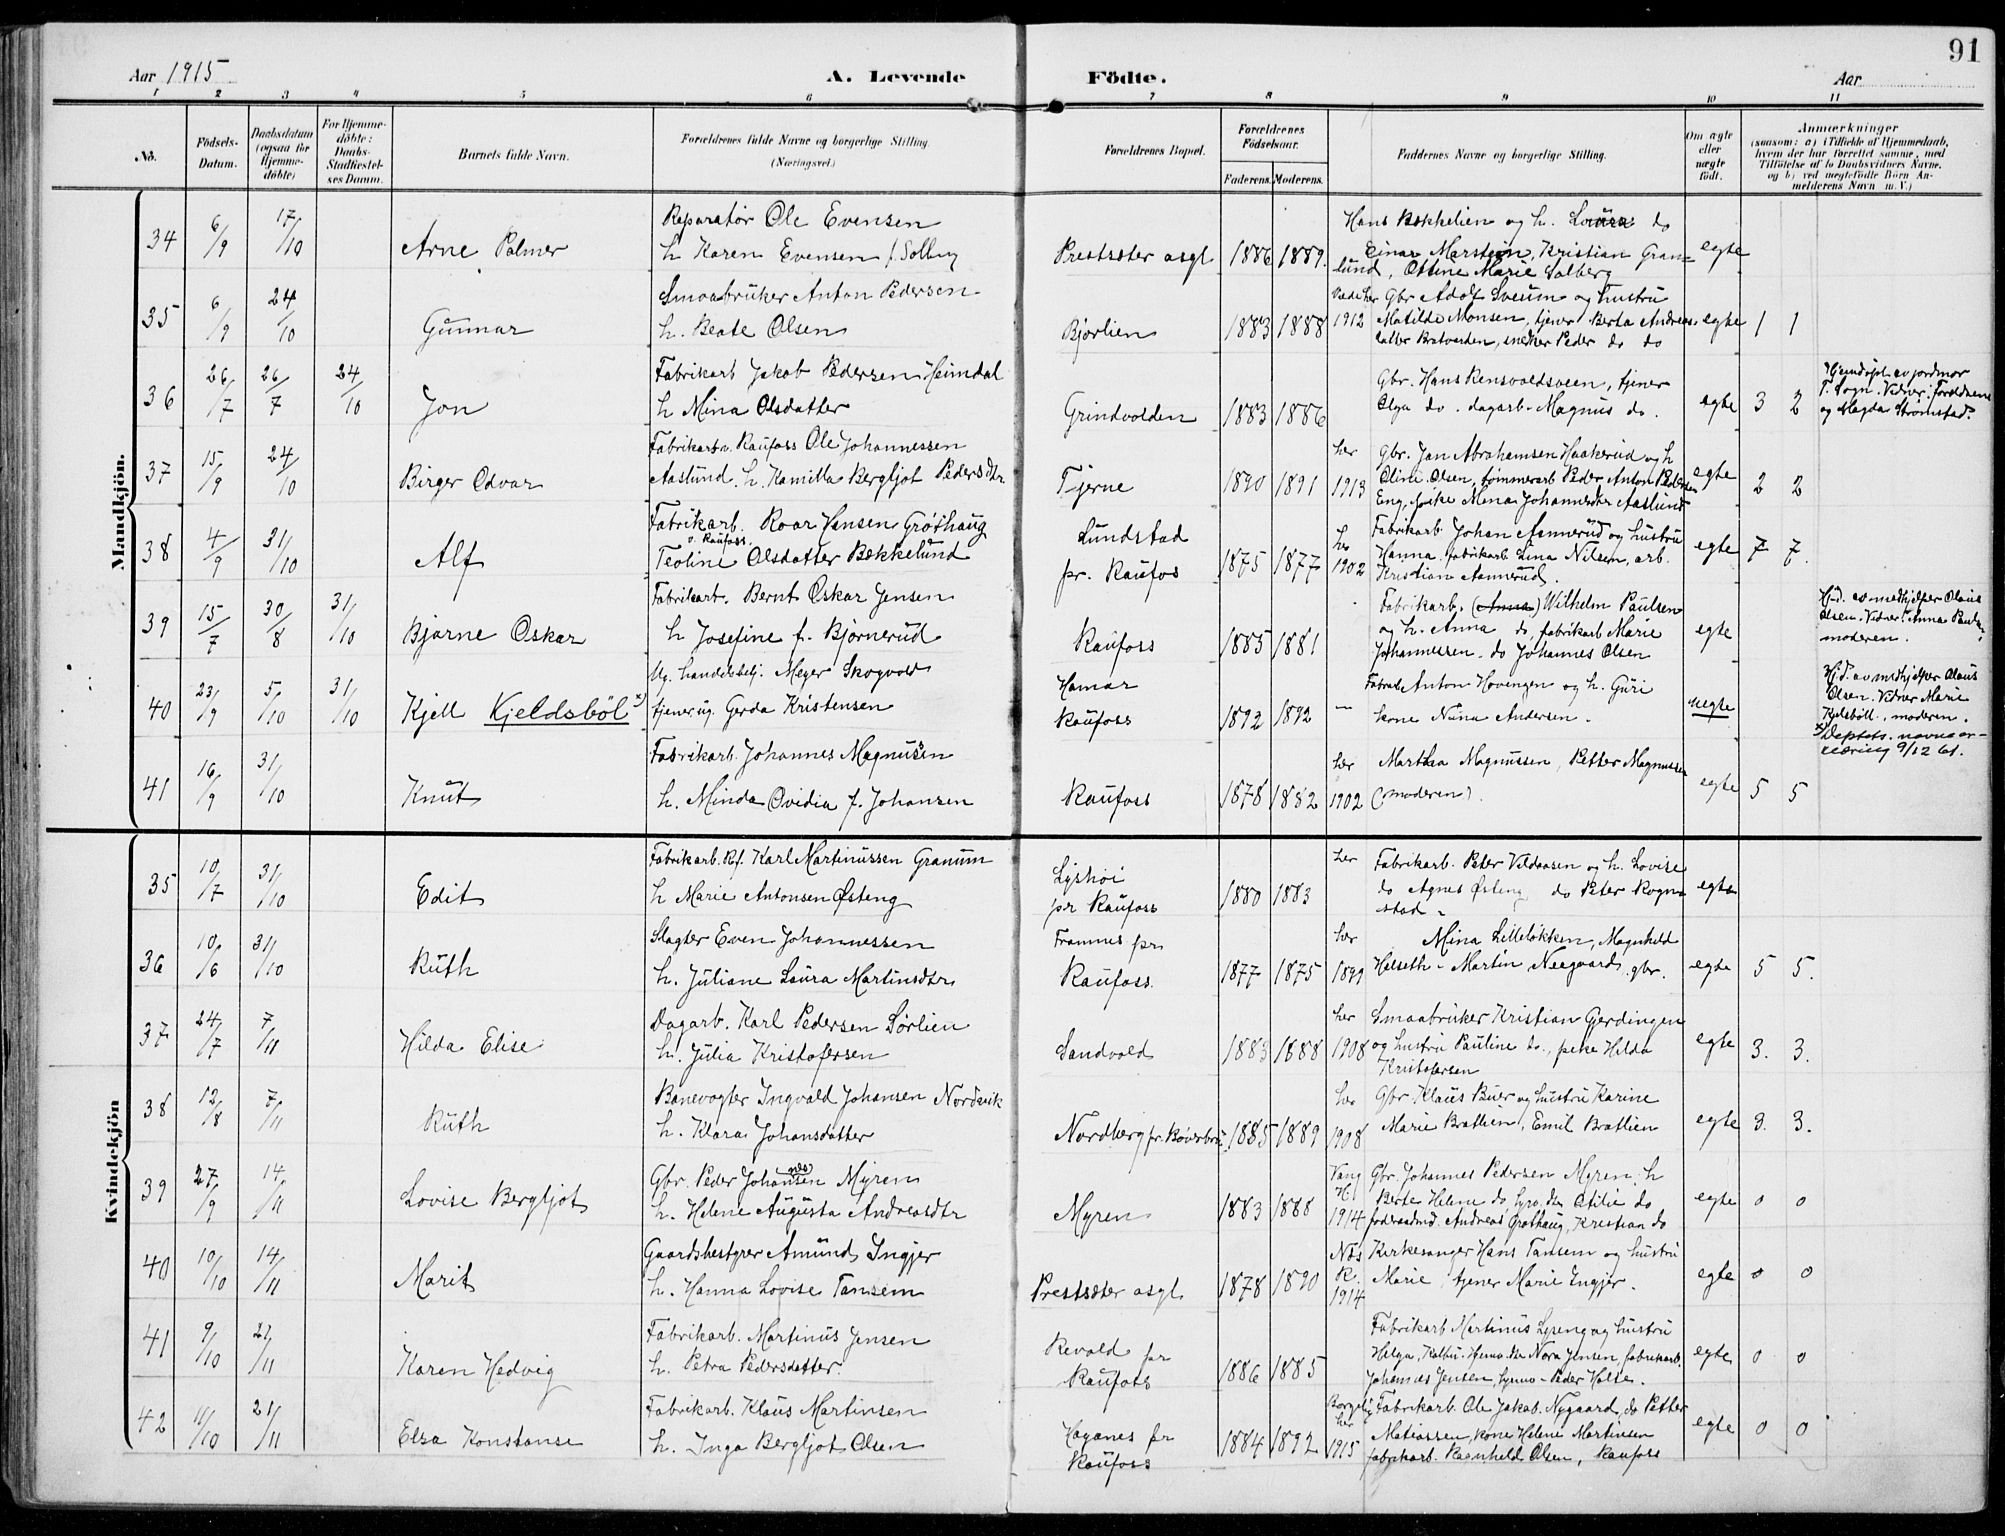 91
Aar 1915
A. Levende
Födte.
Aar
1 2 3 4 5 6 7 8 9 10 11
No.
Födsels-
Datum.
Daabsdatum
(ogsaa for
Hjemme-
döbte)
For Hjemme-
döbte:
Daabs-
Stadfæstel-
ses Datum.
Barnets fulde Navn.
Forældrenes fulde Navne og borgerlige Stilling.
(Næringsvei.)
Forældrenes Bopæl.
Forældrenes
Födselsaar.
Faderens. Moderens.
Faddernes Navne og borgerlige Stilling.
Om ægte
eller
uægte
født.
Anmærkninger
(saasom: a) i Tilfælde af Hjemmedaab,
hvem der har forrettet samme, med
Tilföielse af to Daabsvidners Navne,
og b) ved uægtefödte Börn An-
melderens Navn m. V.)
Mandkjön.
34 6/9 17/10 Arne Palmer
Reparatør Ole Evensen
h Karen Evensen f. Solberg
Prestsæter asgl. 1886 1889.
Hans Bækkelien og h. Laura do
Einar Marstein, Kristian Gran-
lund, Ottine Marie Solberg
egte
35 6/9 24/10 Gunnar
Smaabruker Anton Pedersen
h. Beate Olsen
Bjørlien 1883 1888 1912
Gbr Adolf Sveum og hustru
Matilde Monsen, tjener Berta Andreas-
datter Bratvarden, snekker Peder do do
egte 1 1
36 26/7 26/7 24/10 Jon
Fabrikarb Jakob Pedersen Heimdal
h Mina Olsdatter
Grindvolden 1883 1886
Gbr. Hans Rensvoldsveen, tjener
Olga do. dagarb. Magnus do.
egte 3 2
Hjemdøpt av jordmor
T. Sogn. Vidner: Foreldrene
og Magda Strømstad.
37 15/9 24/10 Birger Odvar
Fabrikarb v. Raufoss Ole Johannessen
Aaslund. h. Kamilla Bergljot Pedersdtr.
Tjerne 1890 1891 her 1913
Gbr. Jan Abrahamsen Haakerud og h
Oline Olsen, tømmerarb Peder Anton Pedersen
Eng, pike Mina Johannesdtr Aaslund
egte 2 2
38 4/9 31/10 Alf
Fabrikarb. Roar Hansen Grøthaug
v. Raufoss.
Teoline Olsdatter Bækkelund
Lundstad
pr. Raufos 1875 1877 her 1902
Fabrikarb. Johan Aannerud og hustru
Hanna. fabrikarb Lina Nilsen, arb.
Kristian Aannerud.
egte 7 7.
39 15/7 30/8 31/10 Bjarne Oskar
Fabrikarb. Bernt Oskar Jensen
h Josefine f. Bjørnerud
Raufoss 1885 1881
Fabrikarb. (Anna) Wilhelm Paulsen
og h. Anna do, fabrikarb Marie
Johannessen. do Johannes Olsen
egte
Hjd. av medhjelper Olaus
Olsen. Vidner: Anna Pauls.,
moderen.
40 23/9 5/10 31/10 Kjell Kjeldsböl x)
Ug. handelsbetj. Meyer Skogvold
tjener ug. Gerda Kristensen
Hamar
Raufoss 1892 1892 —
Anton Hovengen og h. Guri
kone Nina Andersen.
uegte
Hjd. av medhjelper Olaus
Olsen. Vidner Marie
Kjelsböll, moderen.
x) Deptets. navne-
9/12 61.
41 16/9 31/10 Knut
Fabrikarb. Johannes Magnussen
h. Minda Ovidia f. Johansen
Raufoss 1878 1882 her 1902
Martha Magnussen, Petter Magnussen
(moderen).
egte 5 5
Kvindekjön
35 10/7 31/10 Edit
Fabrikarb. Rf. Karl Martinussen Granum
h Marie Antonsen Østeng
Lyshøi
pr Raufoss 1880 1883 her
Fabrikarb. Peter Vildaasen og h. Lovise
do Agnes Østeng do Peter Rogne-
stad
egte
36 10/6 31/10 Ruth
Slagter Even Johannessen
h. Juliane Laura Martinsdtr
Framnes pr
Raufoss. 1877 1875 her 1899
Mina Lilleløkken, Magnhild
Helseth - Martin Neegaard gbr.
egte 5 5.
37 24/7 7/11 Hilda Elise
Dagarb. Karl Pedersen Sørlien
h. Julia Kristofersen
Sandvold 1883 1888 her 1908
Smaabruker Kristian Gjerdingen
og hustru Pauline do., pike Hilda
Kristofersen
egte 3. 3.
38 12/8 7/11 Ruth
Banevogter Ingvald Johansen Nordsvik
h. Klara Johansdatter
Nordberg pr. Bøverbru 1885 1889 her 1908
Gbr Klaus Buer og hustru Karine
Marie Bratlien, Emil Bratlien
egte 3. 3.
39 27/9 14/11 Lovise Bergljot
Gbr. Peder Johannesen Myren
h. Helene Augusta Andreasdtr
Myren 1883 1888 Vang H. 1914
Gbr. Johannes Pedersen Myren, h
Berte Helene do, Otilie do
foderaadmd. Andreas Grøthaug, Kristian do
egte 0 0
40 10/10 14/11 Marit
Gaardsbestyrer Amund Ingjer
h. Hanna Lovise Tansem
Prestsæter asgl. 1878 1890 Næs R. 1914
Kirkesanger Hans Tansem og hustru
Marie, tjener Marie Ingjer.
egte 0 0
41 9/10 21/11 Karen Hedvig
Fabrikarb. Martinus Jensen
h. Petra Pedersdatter.
Revold pr
Raufoss 1886 1885
Fabrikarb Martinus Lyseng og hustru
Helga, Nora Jensen, fabrikarb.
Johannes Jensen, Peder Holte.
egte 0 0
42 11/10 21/11 Elsa Konstanse
Fabrikarb. Klaus Martinsen
h. Inga Bergljot Olsen
Haganes pr
Raufoss 1884 1892 her 1915
Fabrikarb. Ole Jakob Nygaard, do Petter
Matiassen, kone Helene Martinsen
fabrikarb. Ragnhild Olsen, Raufoss
egte 0 0